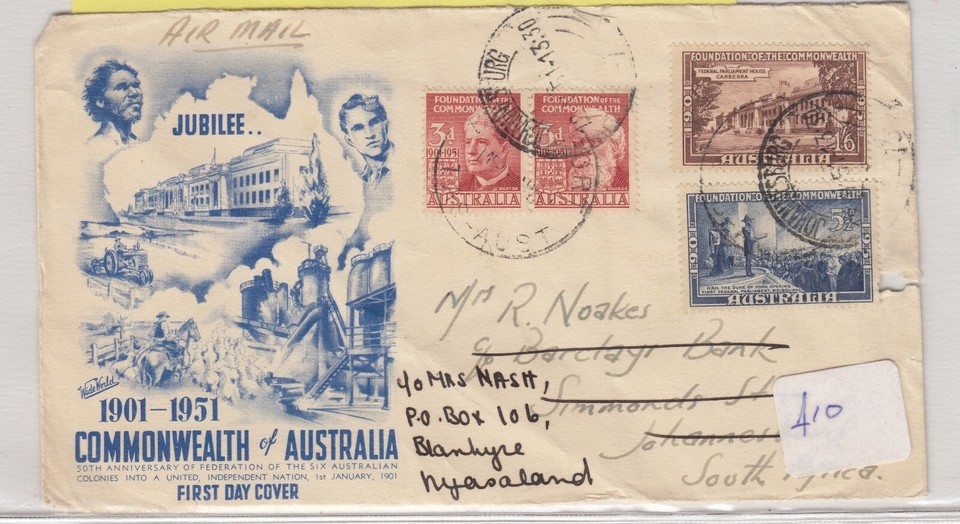 AIR MAIL
JUBILEE..
Wide World
1901-1951
COMMONWEALTH of AUSTRALIA
50TH ANNIVERSARY OF FEDERATION OF THE SIX AUSTRALIAN
COLONIES INTO A UNITED, INDEPENDENT NATION, 1st JANUARY, 1901
FIRST DAY COVER
FOUNDATION OF THE
COMMONWEALTH
3d
1901-1951
E. BARTON
AUSTRALIA
FOUNDATION OF THE
COMMONWEALTH
3d
H. PARKES
AUSTRALIA
AUST
13.30
FOUNDATION OF THE COMMONWEALTH
FEDERAL PARLIAMENT HOUSE
CANBERRA
1901
1951
1/6
AUSTRALIA
FOUNDATION OF THE COMMONWEALTH
1901
1951
5½d
H.R.H. THE DUKE OF YORK OPENING
FIRST FEDERAL PARLIAMENT, MELBOURNE
AUSTRALIA
Mr R. Noakes
c/o Barclays Bank
Simmonds St
South Africa.
c/o MRS NASH,
P.O. BOX 106,
Blantyre
Nyasaland
£10